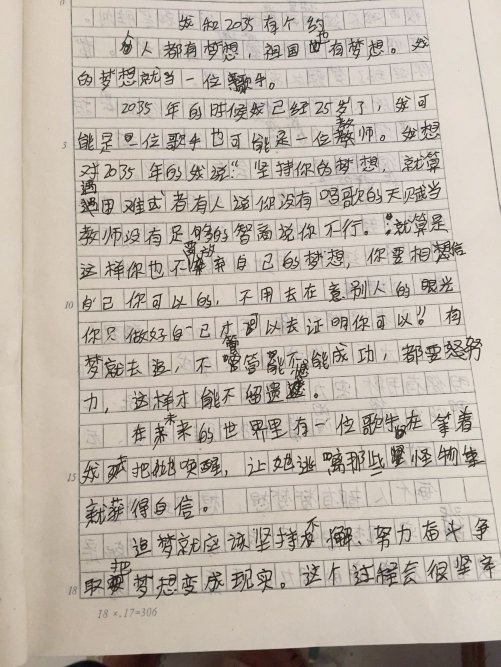 我和2035有个约
人人都有梦想，祖国也有梦想。我
的梦想就当一位歌手。
2035年的时候我已经25岁了，我可
能是一位歌手也可能是一位教师。我想
对2035年的我说："坚持你的梦想，就算
遇困难或者有人说你没有唱歌的天赋当
教师没有足够的智商说你不行。"就算是
这样你也不要放弃自己的梦想，你要相想信
自己你可以的，不用去在意别人的眼光
你只做好自己才可以去证明你可以！有
梦就去追，不管能不能成功，都要努
力，这样才能不留遗憾。
在未来的世界里有一位歌手在等着
我把她唤醒，让她逃离那些怪物
就获得自信。
追梦就应该坚持不懈、努力奋斗争
取把梦想变成现实。这个过程会很坚辛
3
10
15
18
18×.17=306